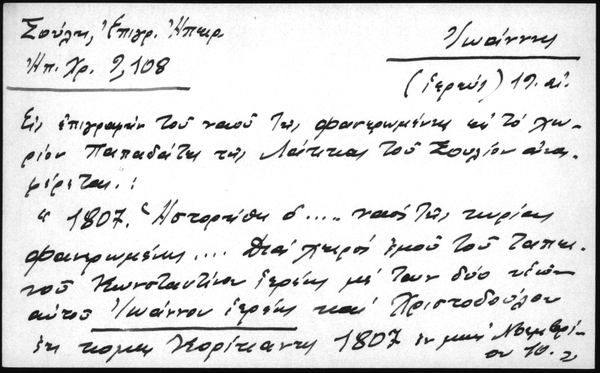 Σούλη, Ἐπιγρ. Ἠπειρ
Ἠπ. Χρ. 9, 108
Ἰωάννης
(ἱερεύς) 19. αἰ.
Εἰς ἐπιγραφὴν τοῦ ναοῦ τῆς φανερωμένης εἰς τὸ χω-
ρίον Παπαδάτες τῆς Λάκκας τοῦ Σουλίου ἀνα-
φέρεται:
" 1807. Ἁστορήθη ὁ .... ναός τῆς κυρίας
φανερωμένης .... Διά χειρός ἐμοῦ τοῦ ταπει-
νοῦ Κωνσταντίνου ἱερέως μέ των δύο υἱῶν
αὐτοῦ Ἰωάννου ἱερέως καί Χριστοδούλου
ἐκ κώμης Κορίτιανης 1807 ἐν μηνί Νοεμβρί-
ου 10.